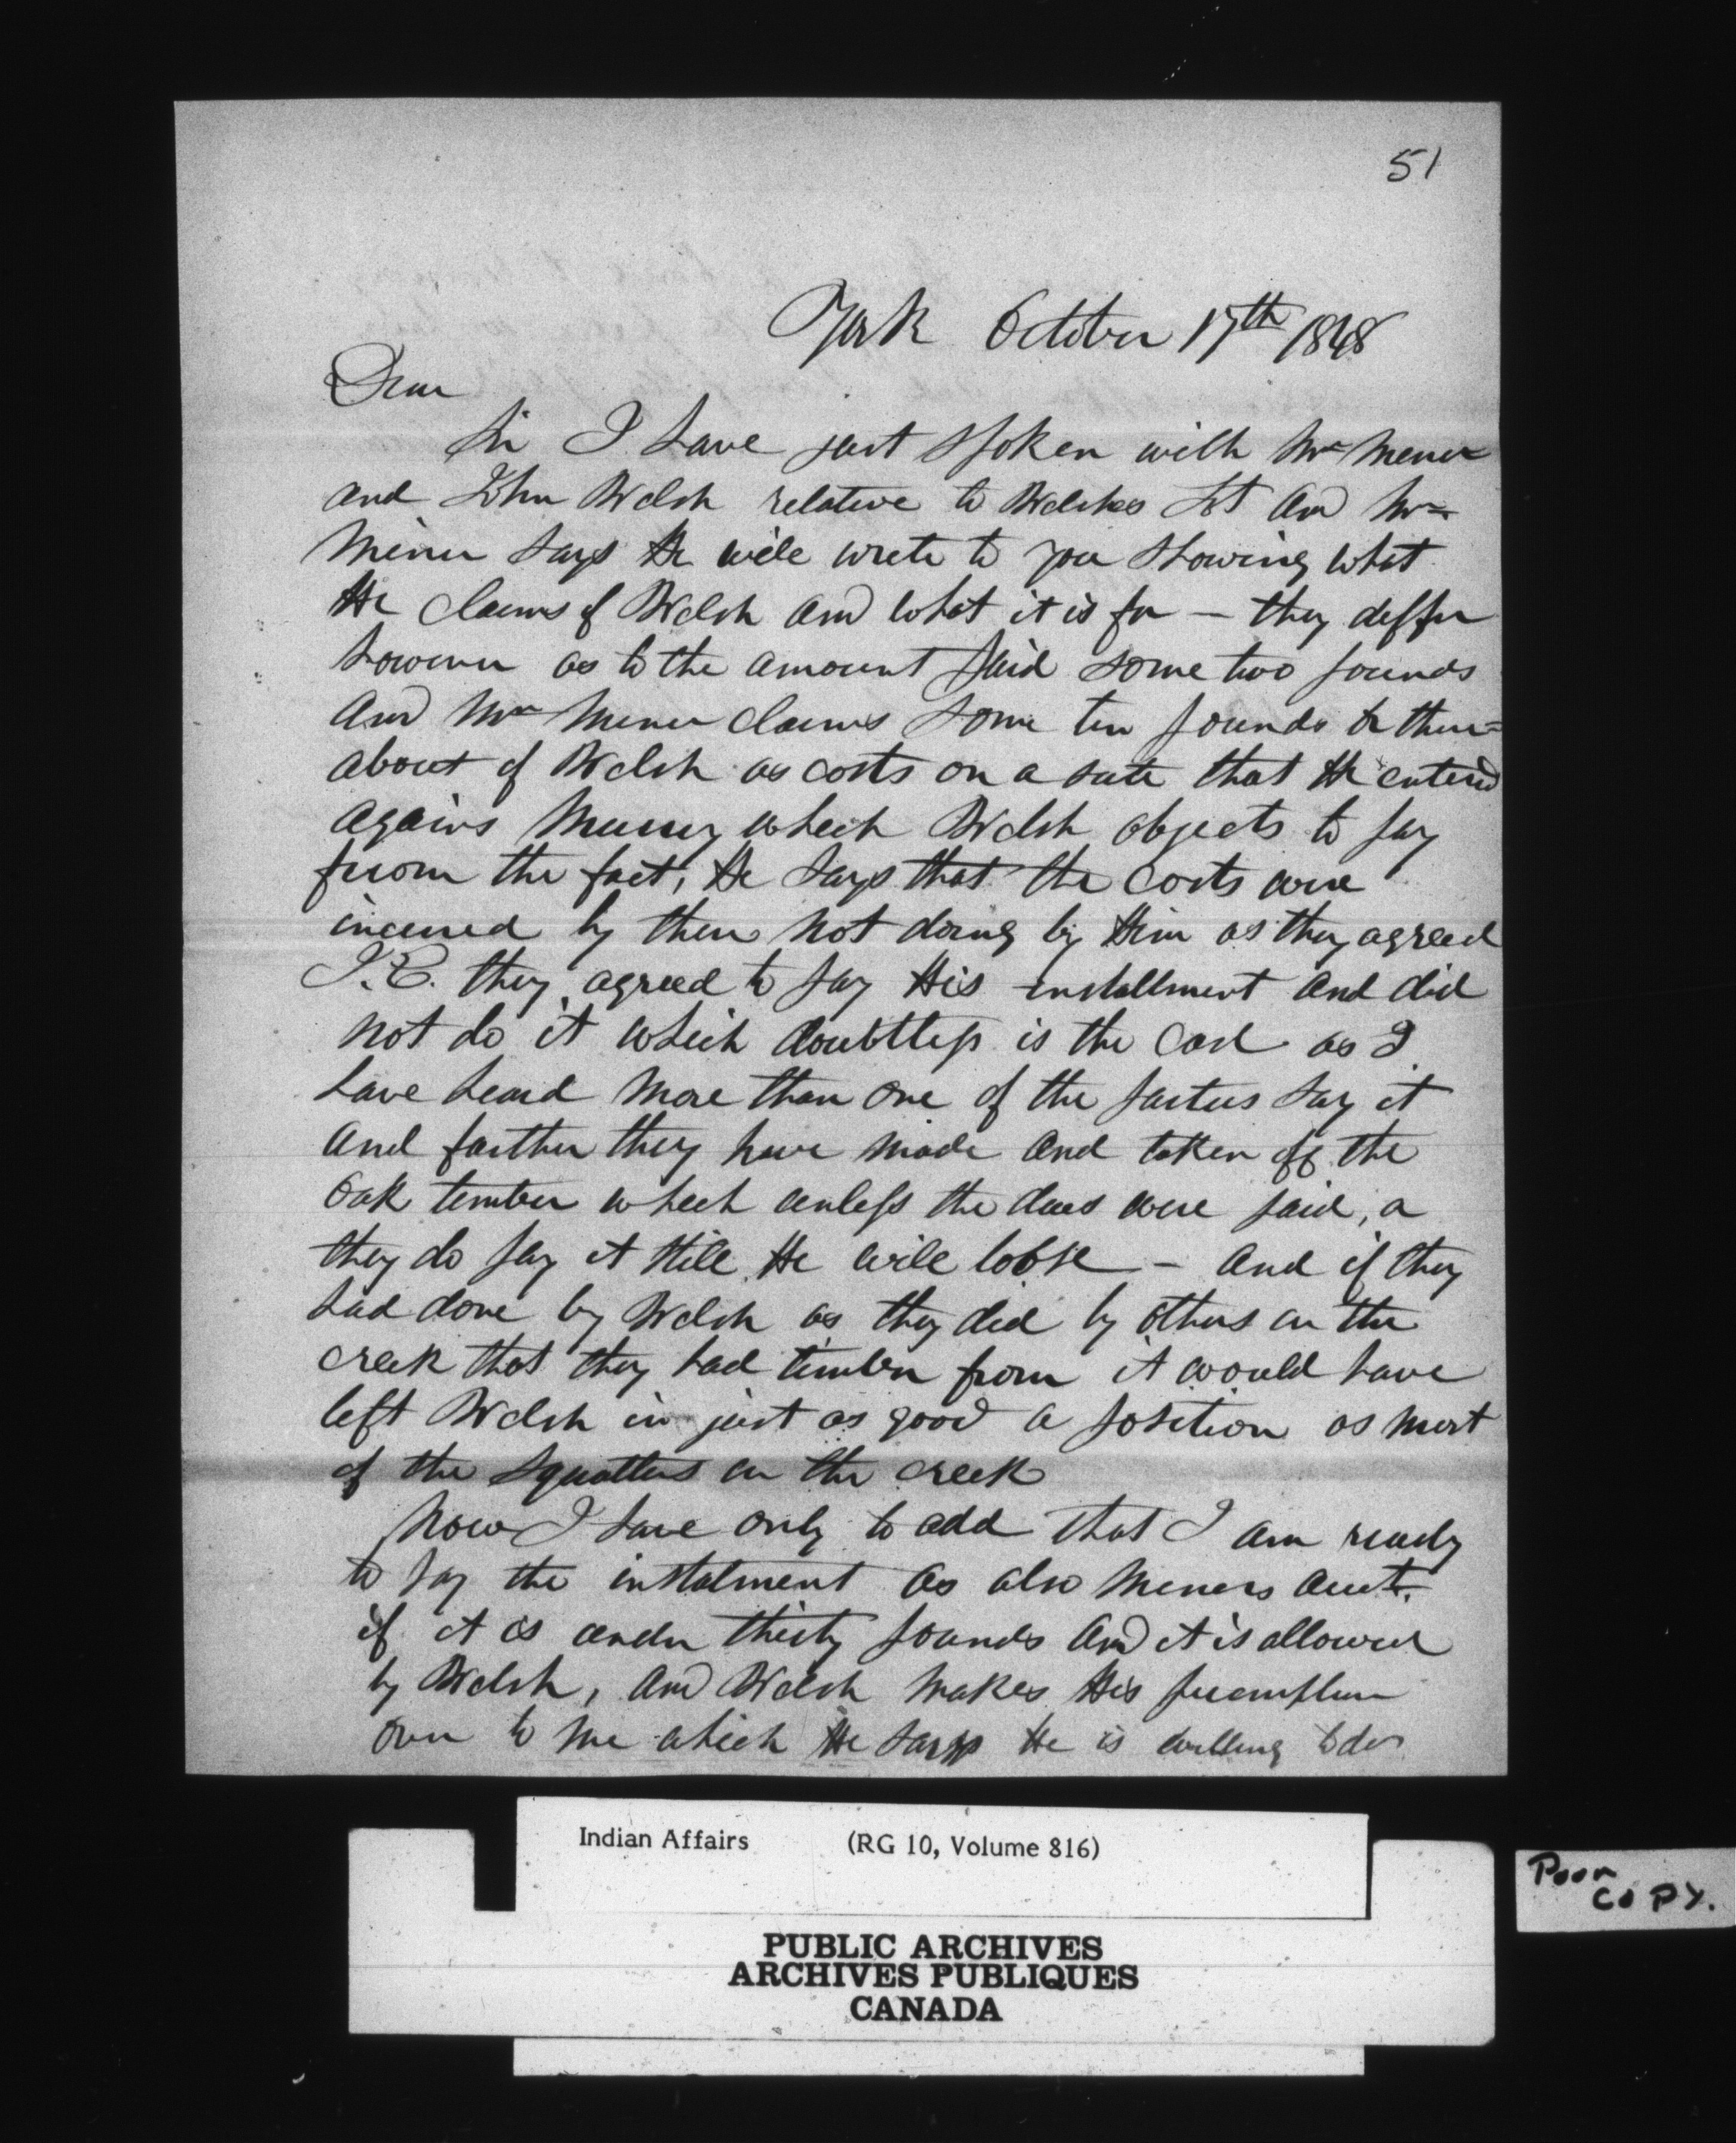 51
York October 17th 1848
Dear
Sir I have just spoken with Mr Miner
and John Welsh relative to Welshes Lot and Mr
Miner says He will write to you showing what
He claims of Welsh and what it is for — they differ
however as to the amount paid some two pounds
and Mr Miner claims some ten pounds or there=
about of Welsh as costs on a suit that He entered
agains Mussey which Welsh objects to pay
from the fact, He says that the costs were
incured by them not doing by Him as they agreed
I.E. they agreed to pay His installment and did
not do it which doubtless is the case as I
have heard more than one of the parties say it
and farther they have made and taken off the
Oak timber which unless the dues were paid, a
they do say it still He will loose — and if they
had done by Welsh as they did by others on the
creek that they had timber from it would have
left Welsh in just as good a position as most
of the Squatters on the creek
Now I have only to add that I am ready
to pay the instalment as also Miners acct.
if it is under thirty pounds and it is allowed
by Welsh, and Welsh makes His preemption
over to me which He says He is willing to do
Indian Affairs (RG 10, Volume 816)
PUBLIC ARCHIVES
ARCHIVES PUBLIQUES
CANADA
Poor
COPY.